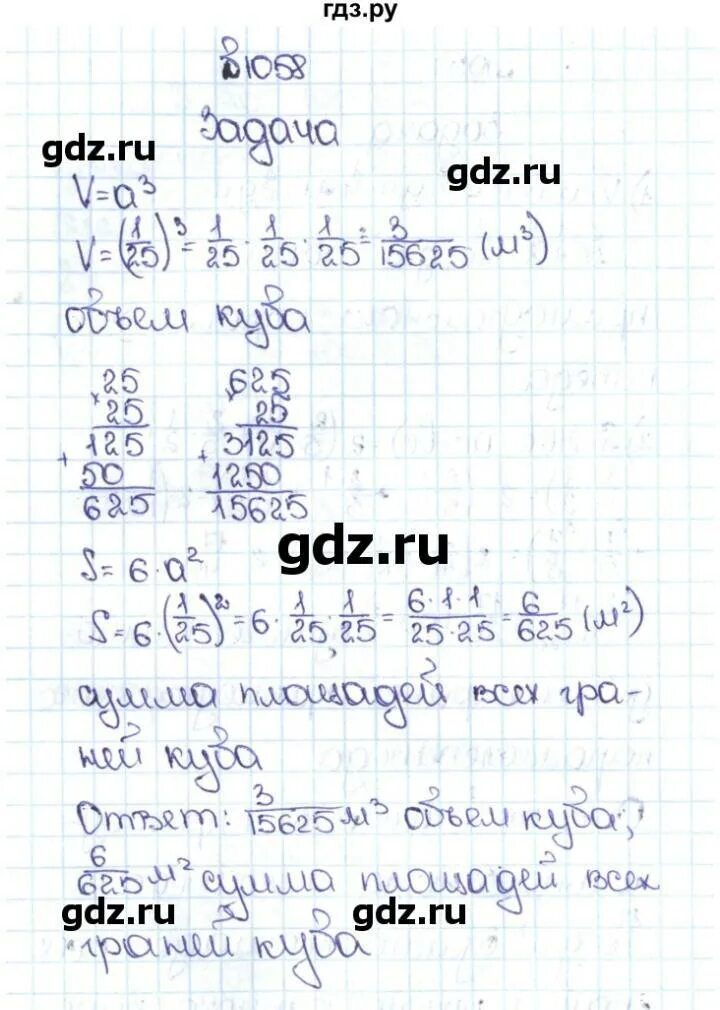 гдз.ру
№1058
Задача
gdz.ru
gdz.ru
V=a³
V=(1/25)³=1/25·1/25·1/25=3/15625(м³)
объем куба
25 625
×25 ×25
+125 +3125
50 1250
625 15625
gdz.ru
S=6·a²
S=6·(1/25)²=6·1/25·1/25=6·1·1/25·25=6/625(м²)
сумма площадей всех гра-
ней куба
Ответ: 3/15625м³ объем куба;
6/625м² сумма площадей всех
gdz.ru
gdz.ru
граней куба